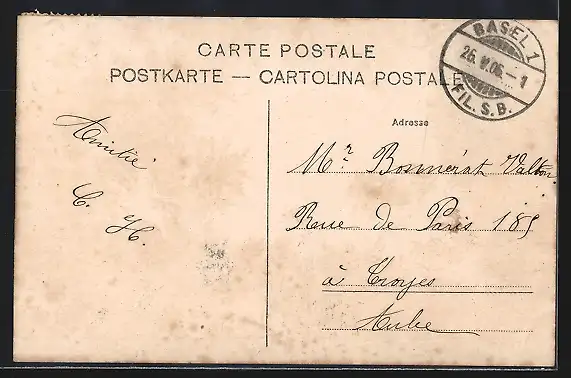 CARTE POSTALE
POSTKARTE — CARTOLINA POSTALE
BASEL 1
26. V. 06. – 1
FIL. S. B.
Adresse
Amitié
C. H.
Mr. Bonnerat Valton
Rue de Paris 185
à Troyes
Aube